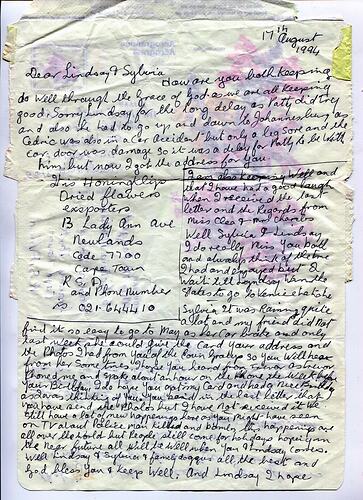 17th August
1994
Dear Lindsay & Sylvia
How are you both keeping
do well through the Grace of God as we are all keeping
good, Sorry Lindsay for the long delay as Patty did try
and also she had to go up and down to Johannesburg as
Cedric was also in a Car accident but only a leg sore and the
Car door was damage so it was a delay for Patty to be with
him, but now I got the address for you
Dried flowers
exsporters
13 Lady Ann Ave
Newlands
Code 7700
Cape Town
R S A
and Phone Number
is 021-644410
I am also keeping well and
that I have had a good laugh
when I received the last
letter and the Regards from
Miss Clas & and Charles
Well Sylvia & Lindsay
I do really Miss you both
and always think of the time
I had and enjoyed but I
wait till Lindsay the
States to go to
Sylvia it was Raining quite
a lot and my friend did Not
find it so easy to go to May as her Car broke and only
last week she could give the Card your address and
the Photos I had from you of the so you will hear
from her Some time. I hope you heard from
Phoned me and Spoke about an hour on the Phone
Your Birthday I do hope you got my Card and had a nice Birthday
as I was thinking of you. You said in the last letter that
you have send the Photos but I have not received it we
still have a lot of new happenings here as you might have seen
on TV about Police man killed and bombs, the happenings are
all over the world but People still come for holidays hope in
the Near future all will be well when you & Lindsay comes.
Well Lindsay & Sylvia & James doggie all the best and
God bless you & Keep well, and Lindsay I hope